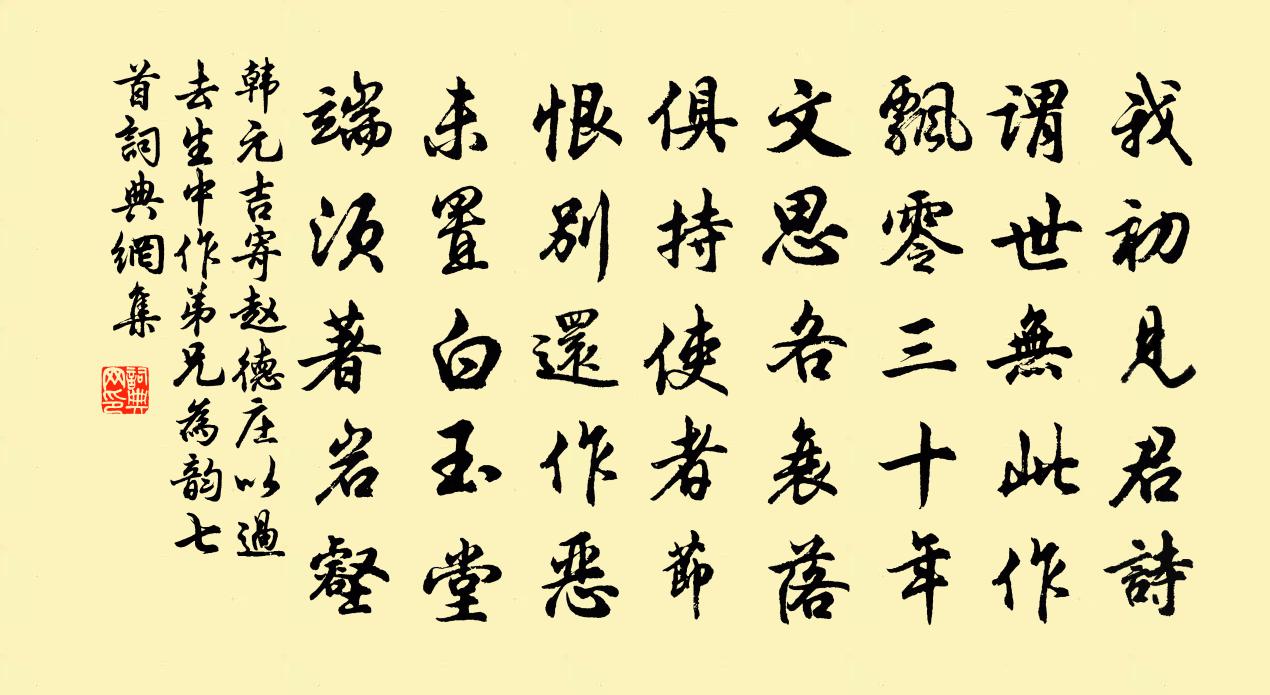 我初見君詩
謂世無此作
飄零三十年
文思各衰落
俱持使者節
恨別還作惡
未置白玉堂
端須著岩壑
韩元吉寄赵德庄以過
去生中作弟兄為韵七
首詞典網集
詞典网印